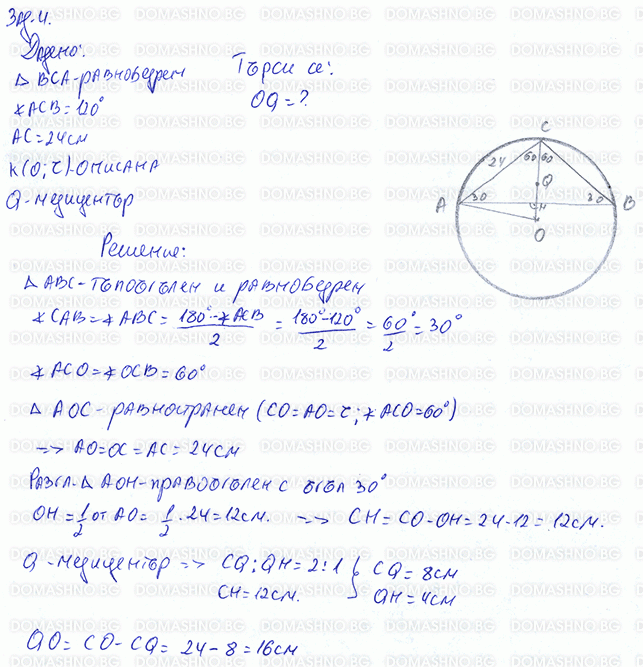 Зад.4.
Дадено:
△ BCA-равнобедрен
∢ACB=120°
AC=24см
K(O;r)-описана
Q-медицентър
Търси се:
OQ=?
C
24
60 60
Q
A
30
30
B
H
O
Решение:
△ ABC-тъпоъгълен и равнобедрен
∢CAB=∢ABC= (180°-∢ACB)/2 = (180°-120°)/2 = 60°/2 = 30°
∢ACO=∢OCB=60°
△ AOC-равностранен (CO=AO=r; ∢ACO=60°)
=> AO=OC=AC=24см
Разгл. △ AOH-правоъгълен с ъгъл 30°
OH = 1/2 от AO = 1/2 . 24=12см. => CH=CO-OH=24-12=12см.
Q-медицентър => CQ:QH=2:1 { CQ=8см
CH=12см. QH=4см
QO= CO-CQ= 24-8=16см